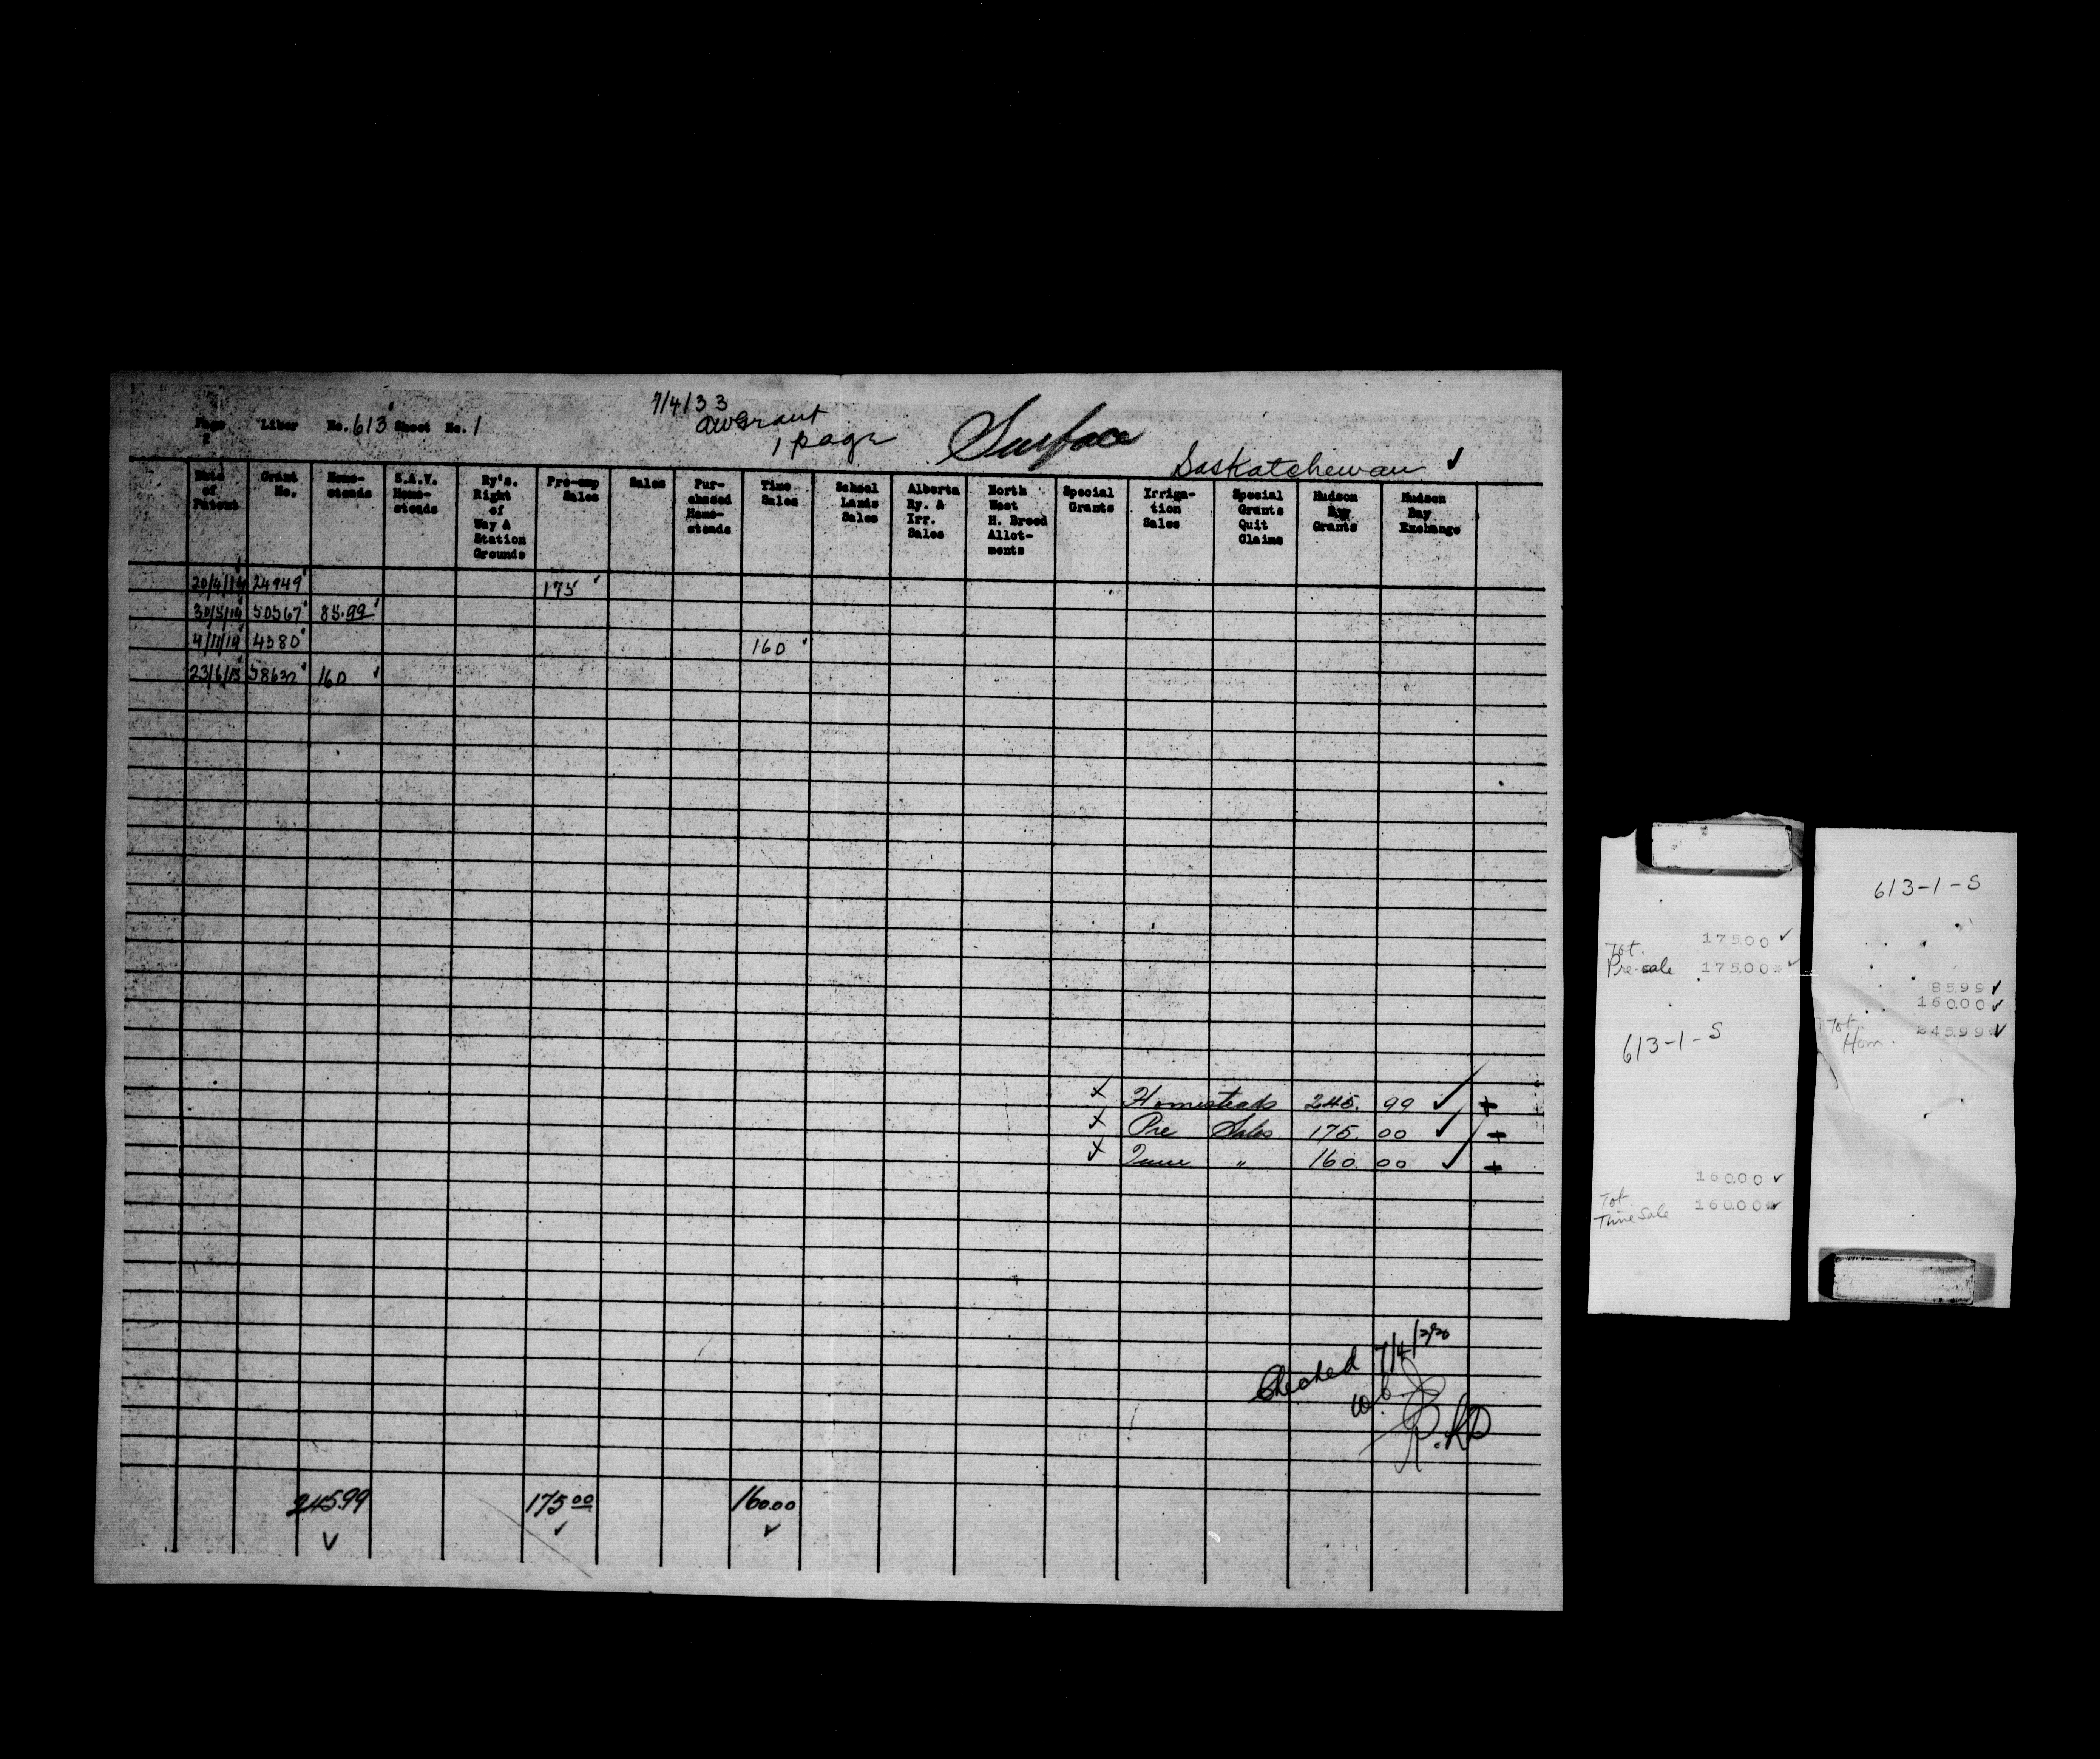 7/4/33
AWGrant
1 page
Surface
Page Liber No. 613 Sheet No. 1
Saskatchewan ✓
Date of Patent
Grant No.
Home-steads
S.A.V. Home-steads
Ry's. Right of Way & Station Grounds
Pre-emp Sales
Sales
Pur-chased Home-steads
Time Sales
School Lands Sales
Alberta Ry. & Irr. Sales
North West H. Breed Allot-ments
Special Grants
Irriga-tion Sales
Special Grants Quit Claims
Hudson Bay Grants
Hudson Bay Exchange
20/4/14 24949 175
30/5/14 50567 85.99
4/11/14 4380 160
23/6/15 58632 160
x Homesteads 245. 99 ✓ +
x Pre Sales 175. 00 ✓ +
x Time " 160. 00 ✓ +
Checked 7/4/
245.99 175 00 160.00
✓ ✓ ✓
175.00 ✓
Tot.
Pre-sale 175.00* ✓
613-1-S
160.00 ✓
Tot
Time Sale 160.00* ✓
613-1-S
85.99 ✓
160.00 ✓
Tot.
Hom. 245.99* ✓